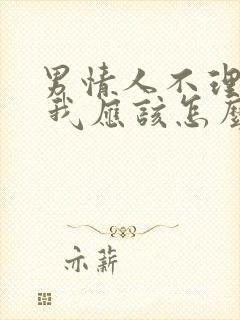 男情人不理
我应该怎麼
亦薪